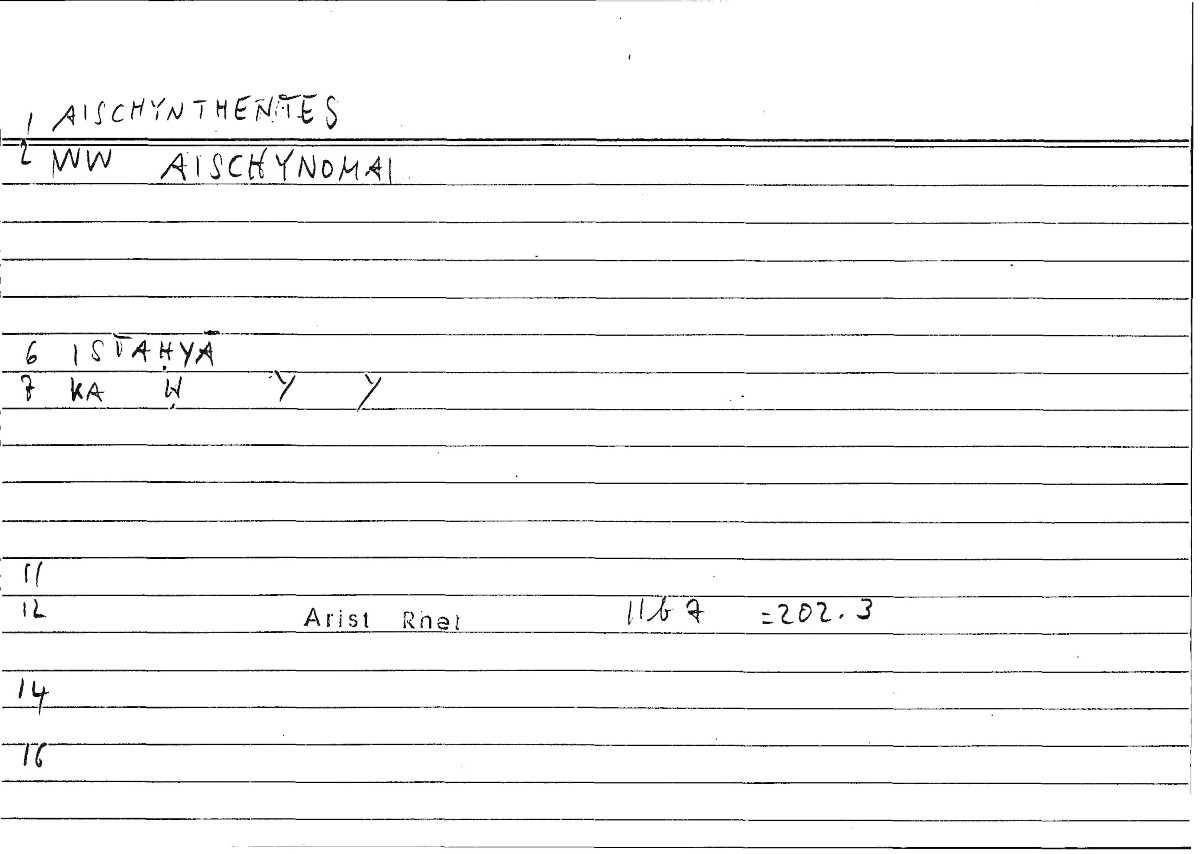 1 AISCHYNTHENTES
2 WW AISCHYNOMAI
6 ISTAḤYĀ
7 KA Ḥ Y Y
11
12 Arist Rhet 11b7 =202.3
14
16